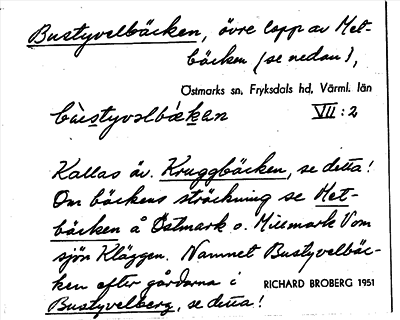 Bustyvelbäcken, övre lopp av Met-
bäcken (se nedan),
Östmarks sn, Fryksdals hd, Värml. län
bùstyvəlbækan VII:2
Kallas äv. Kruggbäcken, se detta!
Om bäckens sträckning se Met-
bäcken å Östmark o. Millsmark V om
sjön Kläggen. Namnet Bustyvelbäc-
ken efter gårdarna i RICHARD BROBERG 1951
Bustyvelberg, se detta!